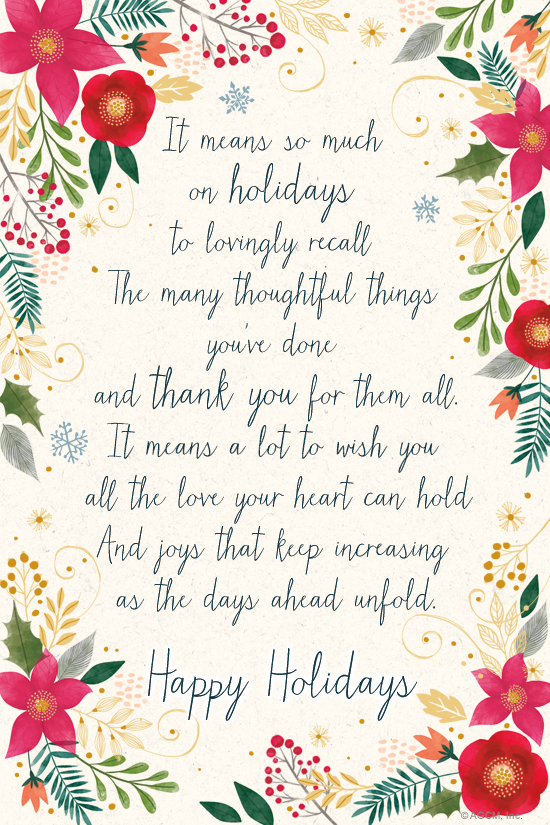 It means so much
on holidays
to lovingly recall
The many thoughtful things
you've done
and thank you for them all.
It means a lot to wish you
all the love your heart can hold
And joys that keep increasing
as the days ahead unfold.
Happy Holidays
© AGCM, Inc.